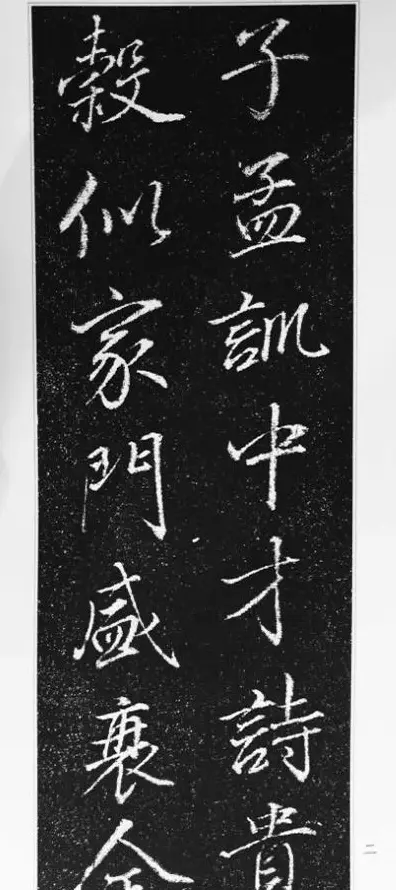 子孟訓中才詩貴
穀似家門盛衰
二